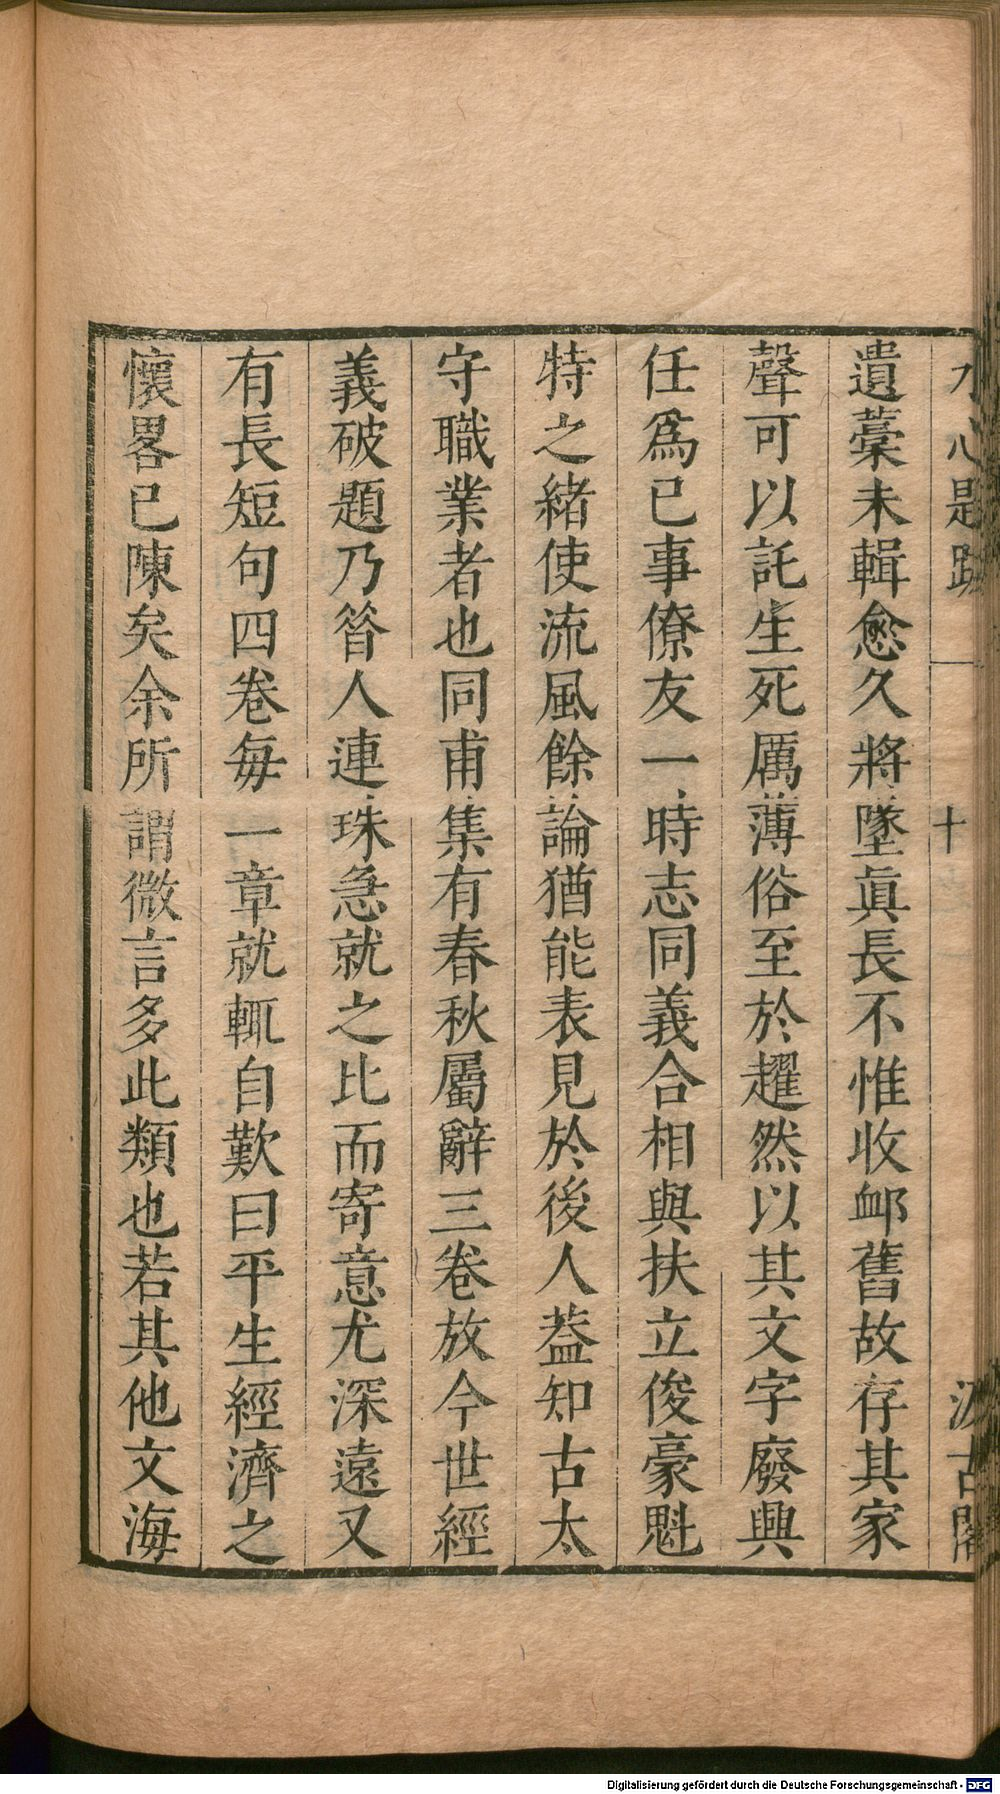 水心題跋 十 汲古閣
遺藁未輯愈久將墜眞長不惟收卹舊故存其家
聲可以託生死厲薄俗至於趯然以其文字廢興
任爲已事僚友一時志同義合相與扶立俊豪魁
特之緒使流風餘論猶能表見於後人葢知古太
守職業者也同甫集有春秋屬辭三卷放今世經
義破題乃昝人連珠急就之比而寄意尤深遠又
有長短句四卷每一章就輒自歎曰平生經濟之
懷畧已陳矣余所謂微言多此類也若其他文海
Digitalisierung gefördert durch die Deutsche Forschungsgemeinschaft - DFG